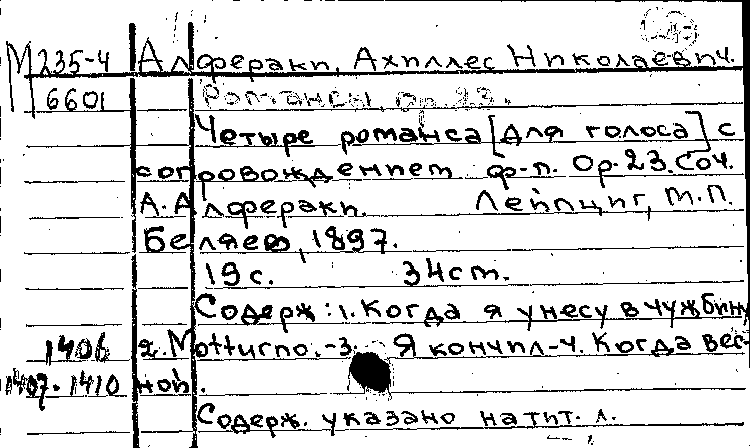 М 235-4 Алфераки, Ахиллес Николаевич.
6601 Романсы, ор. 23.
Четыре романса [для голоса] с
сопровождением ф-п. Ор. 23. Соч.
А. Алфераки. Лейпциг, М.П.
Беляев, 1897.
19 с. 34 см.
Содерж: 1. Когда я унесу в чужбину
1406 2. Notturno. -3. Я кончил -4. Когда вес-
1407-1410 ной.
Содерж. указано на тит. л.